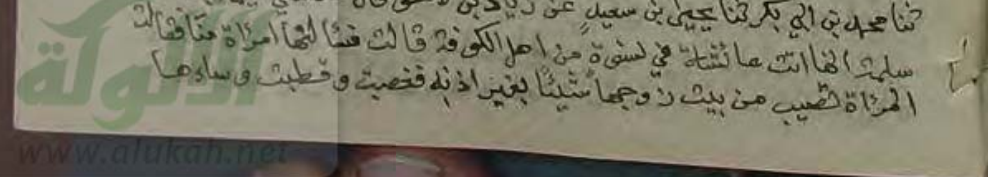 ثنا محمد بن ابي بكر ثنا يحيى بن سعيد عن زياد بن
سلمة انها اتت عائشة في نسوة من اهل الكوفة قالت فسالتها امراة منا فقالت
المرءاة تصيب من بيت زوجها شيئا بغير اذنه فغضبت وقطبت وساءها
الألوكة
www.alukah.net